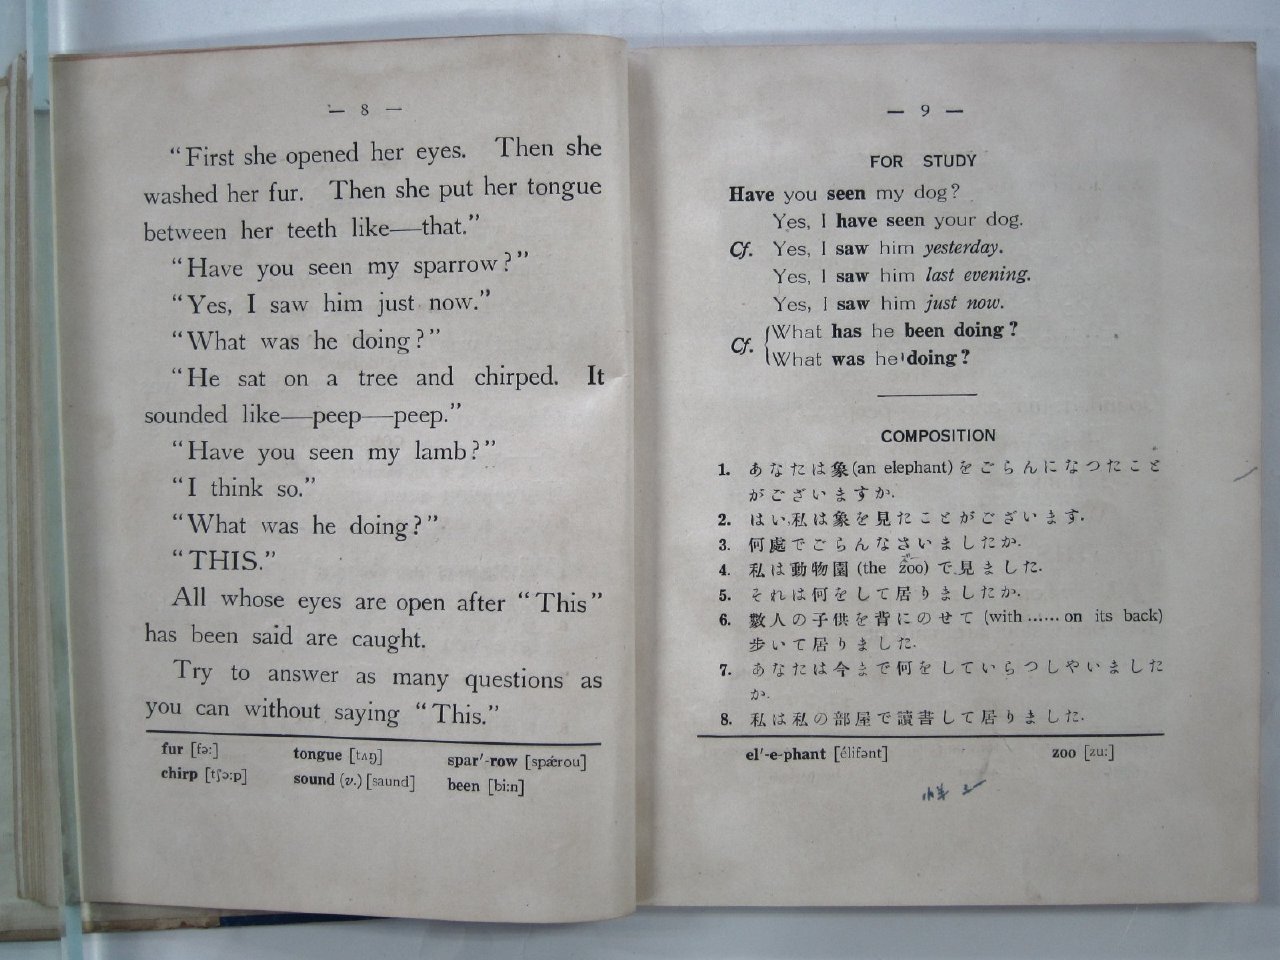 — 8 —
"First she opened her eyes. Then she
washed her fur. Then she put her tongue
between her teeth like—that."
"Have you seen my sparrow?"
"Yes, I saw him just now."
"What was he doing?"
"He sat on a tree and chirped. It
sounded like—peep—peep."
"Have you seen my lamb?"
"I think so."
"What was he doing?"
"THIS."
All whose eyes are open after "This"
has been said are caught.
Try to answer as many questions as
you can without saying "This."
fur [fə:] tongue [tʌŋ] spar'-row [spǽrou]
chirp [tʃə:p] sound (v.) [saund] been [bi:n]
— 9 —
FOR STUDY
Have you seen my dog?
Yes, I have seen your dog.
Cf. Yes, I saw him yesterday.
Yes, I saw him last evening.
Yes, I saw him just now.
Cf. {What has he been doing?
What was he doing?
COMPOSITION
1. あなたは象(an elephant)をごらんになつたこと
がございますか.
2. はい,私は象を見たことがございます.
3. 何處でごらんなさいましたか.
4. 私は動物園(the zoo)で見ました.
5. それは何をして居りましたか.
6. 數人の子供を背にのせて(with ...... on its back)
歩いて居りました.
7. あなたは今まで何をしていらつしやいました
か.
8. 私は私の部屋で讀書して居りました.
el'-e-phant [élifənt] zoo [zu:]